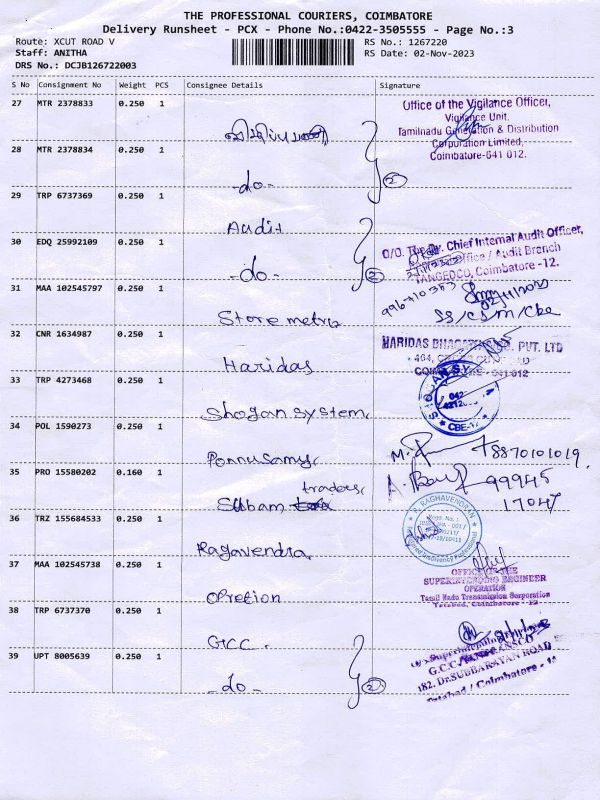 THE PROFESSIONAL COURIERS, COIMBATORE
Delivery Runsheet - PCX - Phone No.:0422-3505555 - Page No.:3
Route: XCUT ROAD V
RS No.: 1267220
Staff: ANITHA
RS Date: 02-Nov-2023
DRS No.: DCJB126722003
S No Consignment No Weight PCS Consignee Details Signature
27 MTR 2378833 0.250 1
Office of the Vigilance Officer,
Vigilance Unit,
Tamilnadu Generation & Distribution
Corporation Limited,
Coimbatore-641 012.
28 MTR 2378834 0.250 1
-do- 2
29 TRP 6737369 0.250 1
Audit
30 EDQ 25992109 0.250 1
-do- 2
O/O. The Dy. Chief Internal Audit Officer,
Office / Audit Branch
TANGEDCO, Coimbatore -12.
31 MAA 102545797 0.250 1
Store metro
SS/CSM/Cbe
32 CNR 1634987 0.250 1
Haridas
HARIDAS PVT. LTD
33 TRP 4273468 0.250 1
Shogan System
CBE-12
34 POL 1590273 0.250 1
Ponnusamy
M. 8870101019
35 PRO 15580202 0.160 1
Subam traders
A. 99945
17047
36 TRZ 155684533 0.250 1
Ragavendra
R. RAGHAVENDRAN
37 MAA 102545738 0.250 1
Opretion
OFFICE OF THE
SUPERINTENDING ENGINEER
OPERATION
Tamil Nadu Transmission Corporation
Tatabad, Coimbatore - 12
38 TRP 6737370 0.250 1
GCC.
39 UPT 8005639 0.250 1
-do- 2
G.C.C
182, Dr.SUBBARAYAN ROAD
Tatabad / Coimbatore - 12